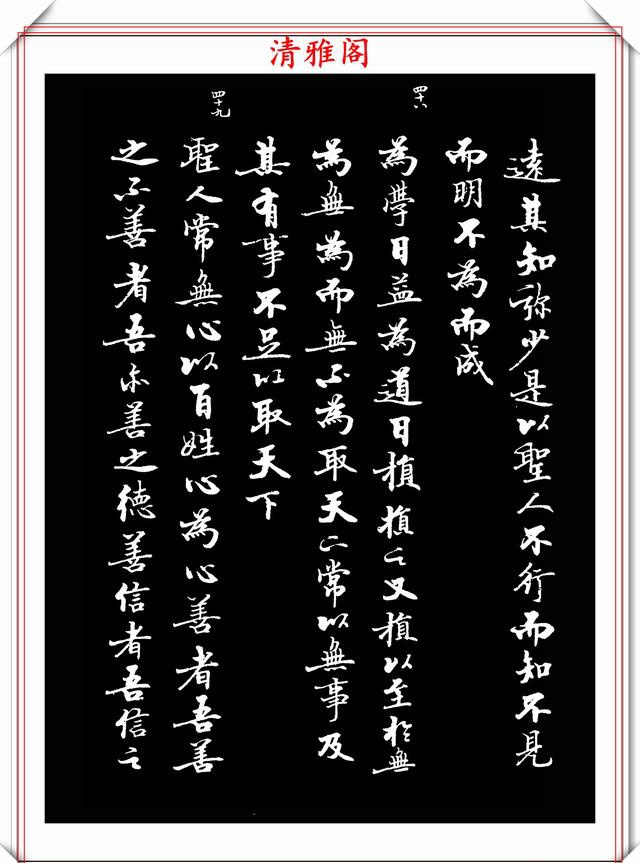 清雅阁
遠其知弥少是以聖人不行而知不見
而明不為而成
四十八
為學日益為道日損損之又損以至於無
為無為而無不為取天下常以無事及
其有事不足以取天下
四十九
聖人常無心以百姓心為心善者吾善
之不善者吾亦善之德善信者吾信之